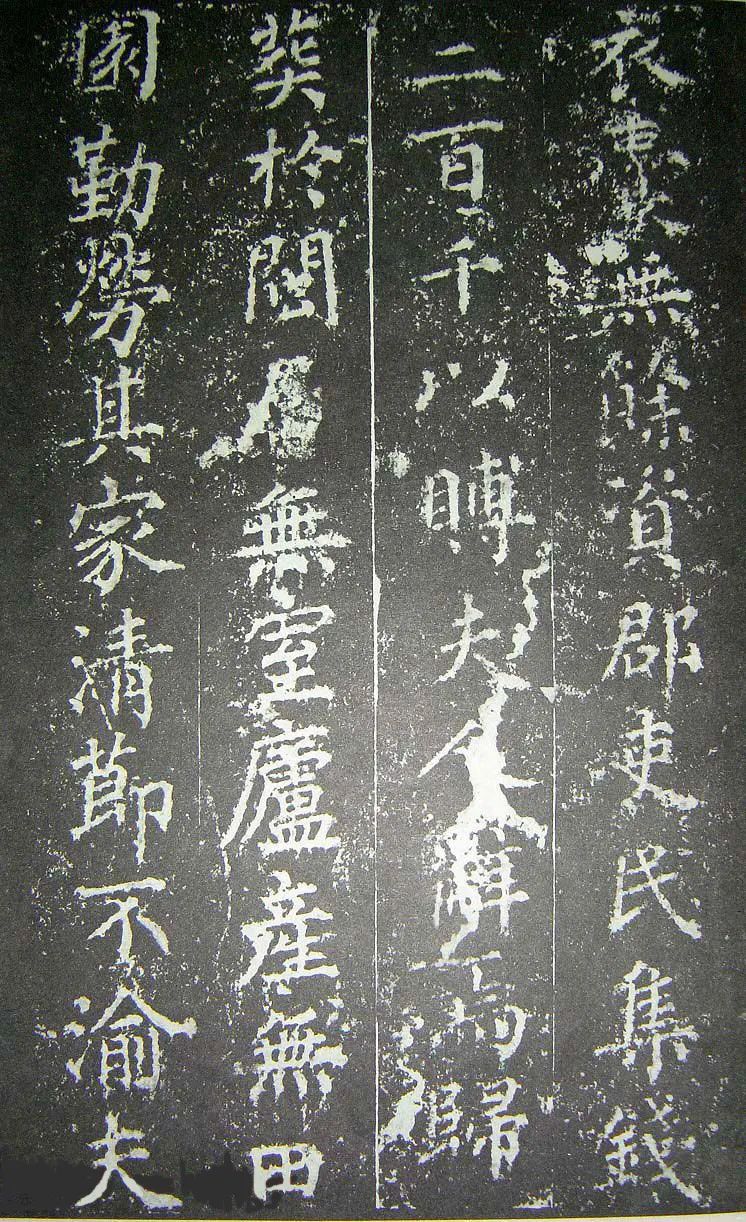 衣無餘資郡吏民集錢
二百千以賻夫人辭歸
葬於閩居無室廬産無田
園勤勞其家清節不渝夫